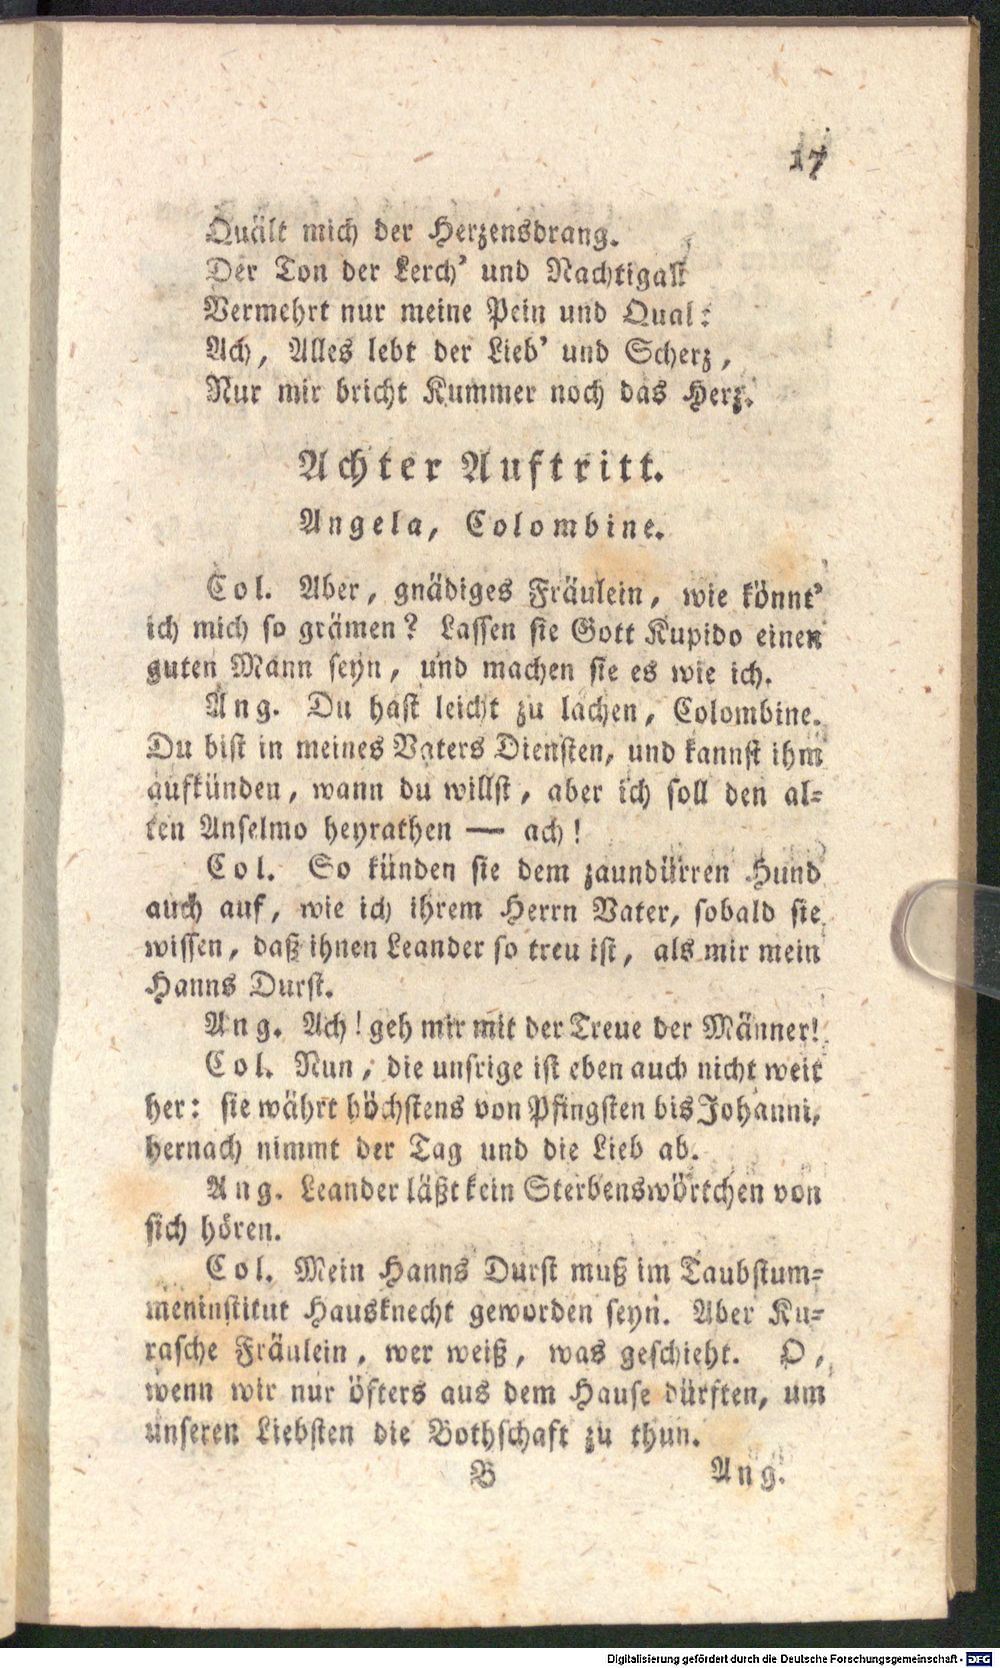 17
Quält mich der Herzensdrang.
Der Ton der Lerch' und Nachtigall
Vermehrt nur meine Pein und Qual:
Ach, Alles lebt der Lieb' und Scherz,
Nur mir bricht Kummer noch das Herz.
Achter Auftritt.
Angela, Colombine.
Col. Aber, gnädiges Fräulein, wie könnt'
ich mich so grämen? Lassen sie Gott Kupido einen
guten Mann seyn, und machen sie es wie ich.
Ang. Du hast leicht zu lachen, Colombine.
Du bist in meines Vaters Diensten, und kannst ihm
aufkünden, wann du willst, aber ich soll den al-
ten Anselmo heyrathen — ach!
Col. So künden sie dem zaundürren Hund
auch auf, wie ich ihrem Herrn Vater, sobald sie
wissen, daß ihnen Leander so treu ist, als mir mein
Hanns Durst.
Ang. Ach! geh mir mit der Treue der Männer!
Col. Nun, die unsrige ist eben auch nicht weit
her: sie währt höchstens von Pfingsten bis Johanni,
hernach nimmt der Tag und die Lieb ab.
Ang. Leander läßt kein Sterbenswörtchen von
sich hören.
Col. Mein Hanns Durst muß im Taubstum-
meninstitut Hausknecht geworden seyn. Aber Ku-
rasche Fräulein, wer weiß, was geschieht. O,
wenn wir nur öfters aus dem Hause dürften, um
unseren Liebsten die Bothschaft zu thun.
B Ang.
Digitalisierung gefördert durch die Deutsche Forschungsgemeinschaft - DFG